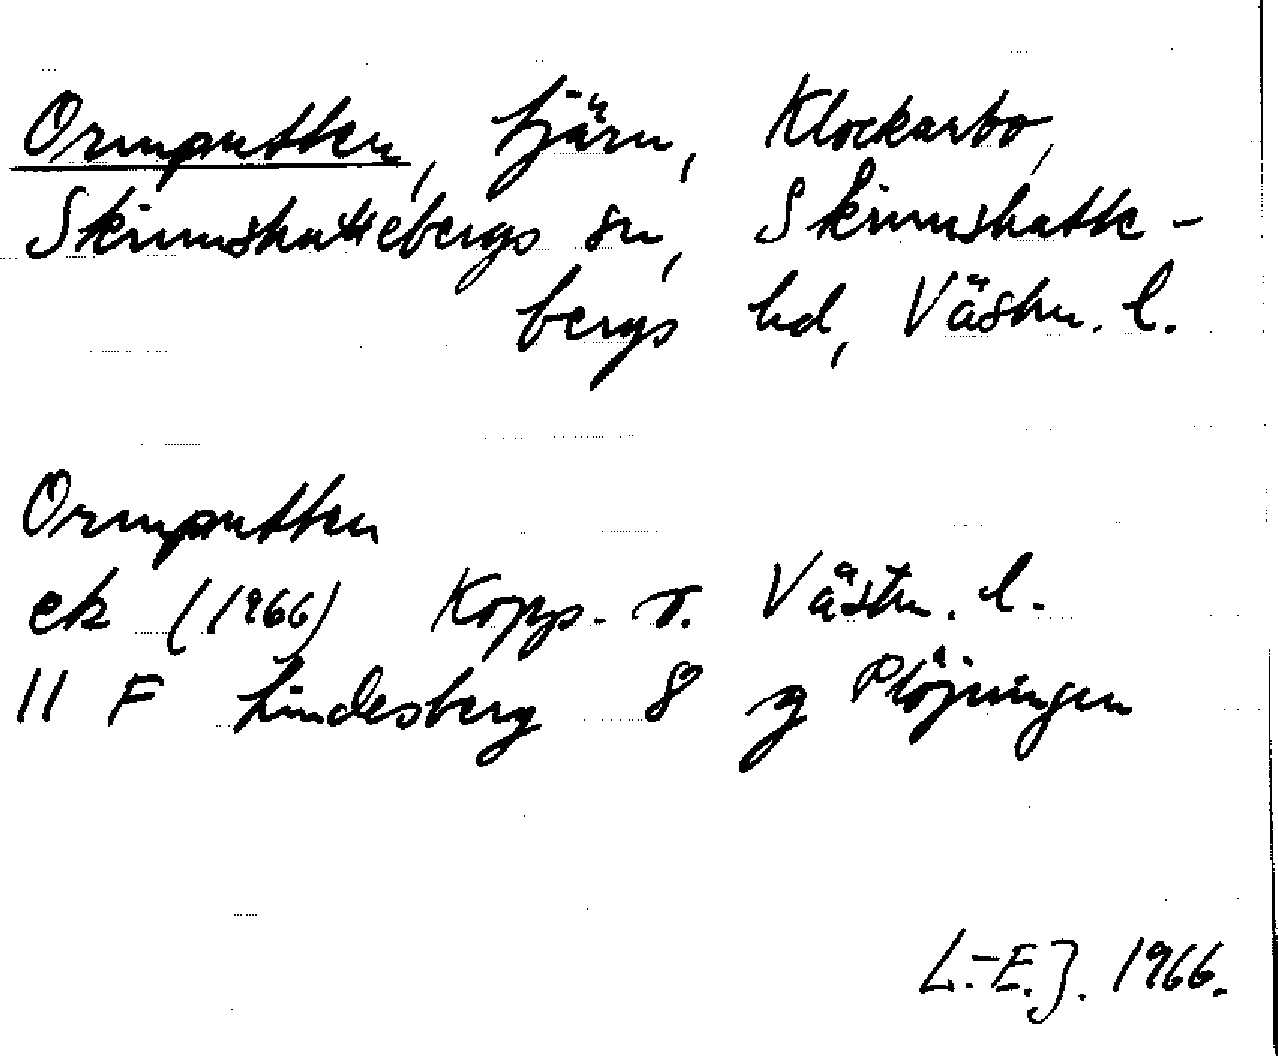 Ormputten, tjärn, Klockarbo,
Skinnskattebergs sn, Skinnskatte-
bergs hd, Västm. l.
Ormputten
ek (1966) Kopp. o. Västm. l.
11 F Lindesberg 8 g Plöjningen
L.-E.J. 1966.